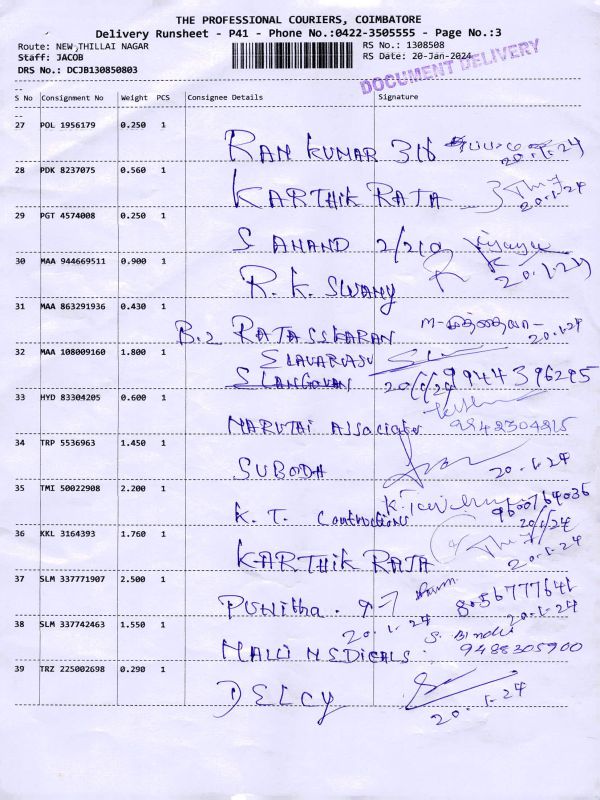 THE PROFESSIONAL COURIERS, COIMBATORE
Delivery Runsheet - P41 - Phone No.:0422-3505555 - Page No.:3
Route: NEW THILLAI NAGAR
RS No.: 1308508
Staff: JACOB
RS Date: 20-Jan-2024
DRS No.: DCJB130850803
DOCUMENT DELIVERY
S No Consignment No Weight PCS Consignee Details Signature
27 POL 1956179 0.250 1
RAM KUMAR 316
20.1.24
28 PDK 8237075 0.560 1
KARTHIK RAJA
20.1.24
29 PGT 4574008 0.250 1
S ANAND 2/210
30 MAA 944669511 0.900 1
R.K. SWAMY
20.1.24
31 MAA 863291936 0.430 1
B.2 RAJASEKARAN
20.1.24
32 MAA 108009160 1.800 1
ELAVARASU
20/1/24 9944396295
33 HYD 83304205 0.600 1
MARUTAI Associates
34 TRP 5536963 1.450 1
SUBODH
20.1.24
35 TMI 50022908 2.200 1
9600764036
K. T. Contructions
20/1/24
36 KKL 3164393 1.760 1
KARTHIK RAJA
20.1.24
37 SLM 337771907 2.500 1
PUNITHA. 9-7
8056777641
20.1.24
20.1.24
38 SLM 337742463 1.550 1
MALLI MEDICALS.
9488305900
39 TRZ 225002698 0.290 1
DELCY
20.1.24